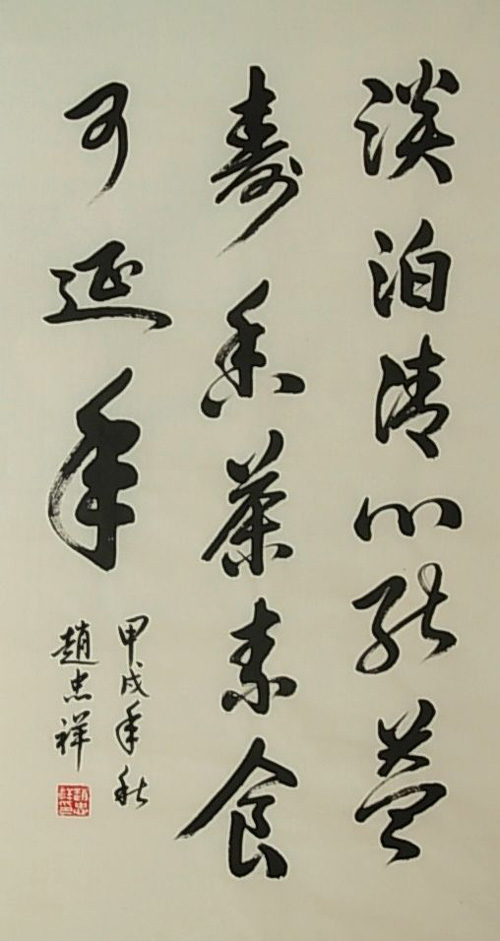 淡泊清心能益
寿香茶素食
可延年
甲戌年秋
趙忠祥